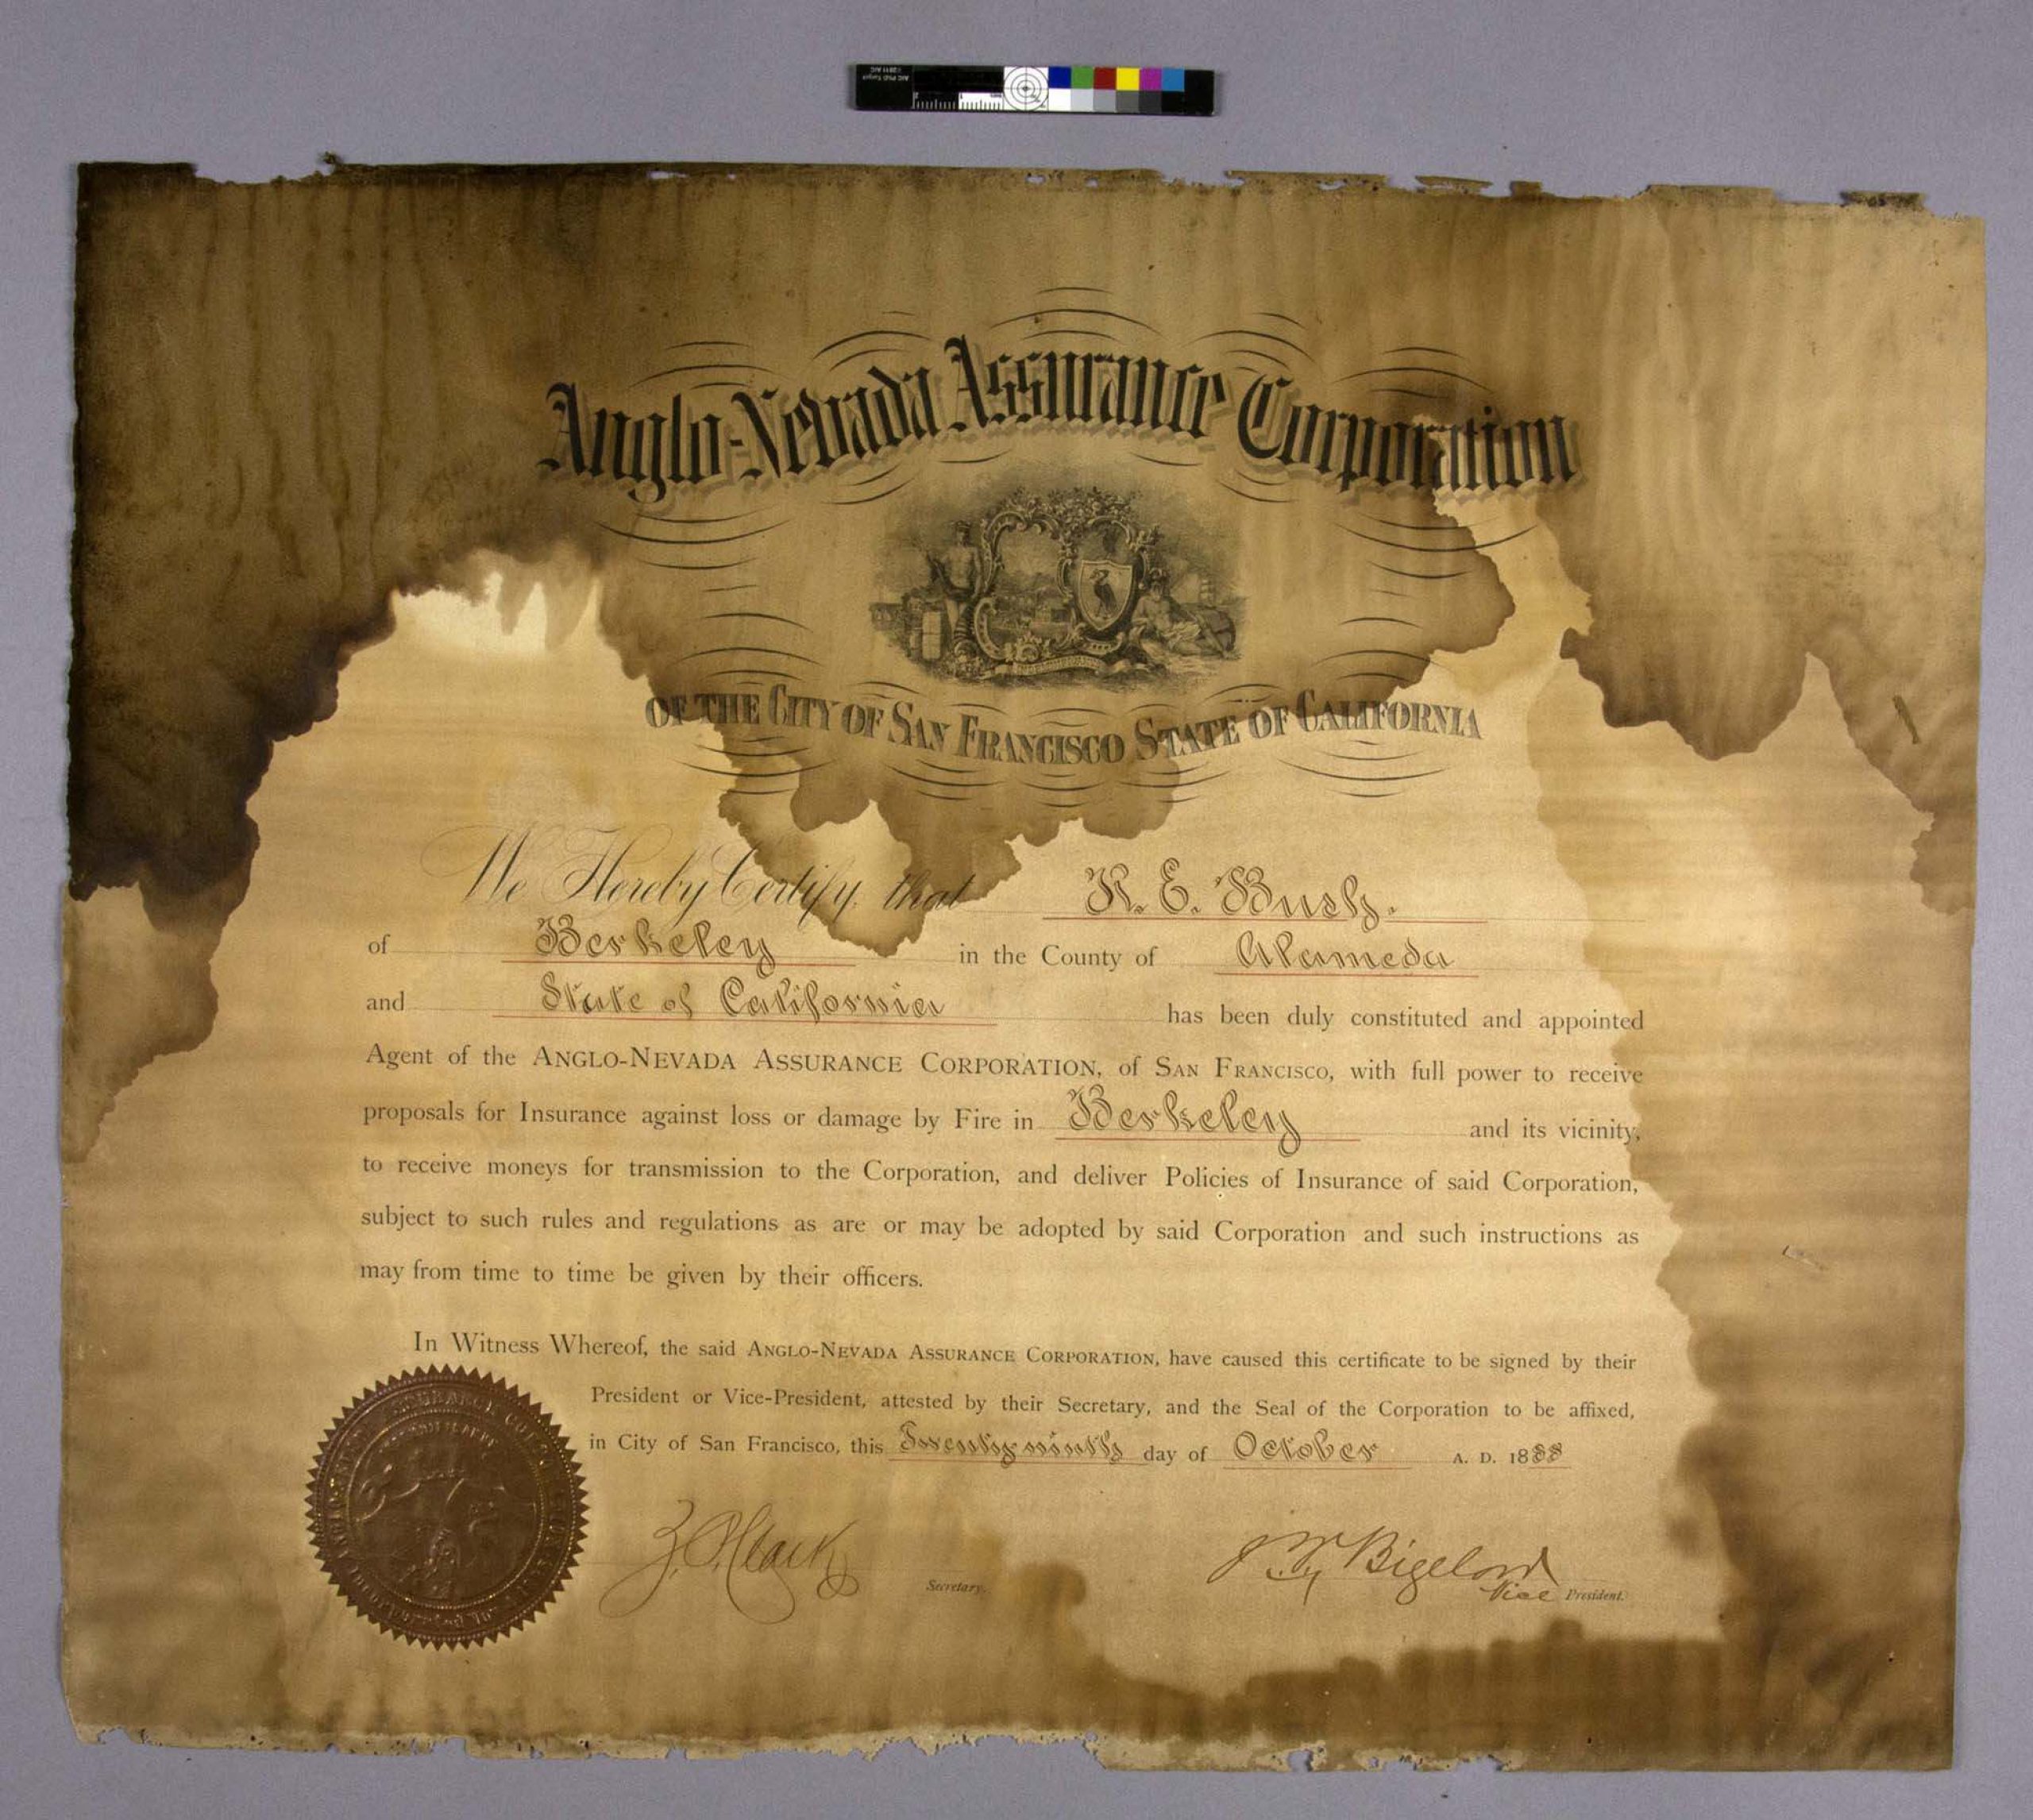 Anglo-Nevada Assurance Corporation
OF THE CITY OF SAN FRANCISCO STATE OF CALIFORNIA
We Hereby Certify, that R. E. Bush.
of Berkeley in the County of Alameda
and State of California has been duly constituted and appointed
Agent of the ANGLO-NEVADA ASSURANCE CORPORATION, of SAN FRANCISCO, with full power to receive
proposals for Insurance against loss or damage by Fire in Berkeley and its vicinity,
to receive moneys for transmission to the Corporation, and deliver Policies of Insurance of said Corporation,
subject to such rules and regulations as are or may be adopted by said Corporation and such instructions as
may from time to time be given by their officers.
In Witness Whereof, the said ANGLO-NEVADA ASSURANCE CORPORATION, have caused this certificate to be signed by their
President or Vice-President, attested by their Secretary, and the Seal of the Corporation to be affixed,
in City of San Francisco, this Twenty ninth day of October A. D. 1888
Clark Secretary.
Bigelow Vice President.